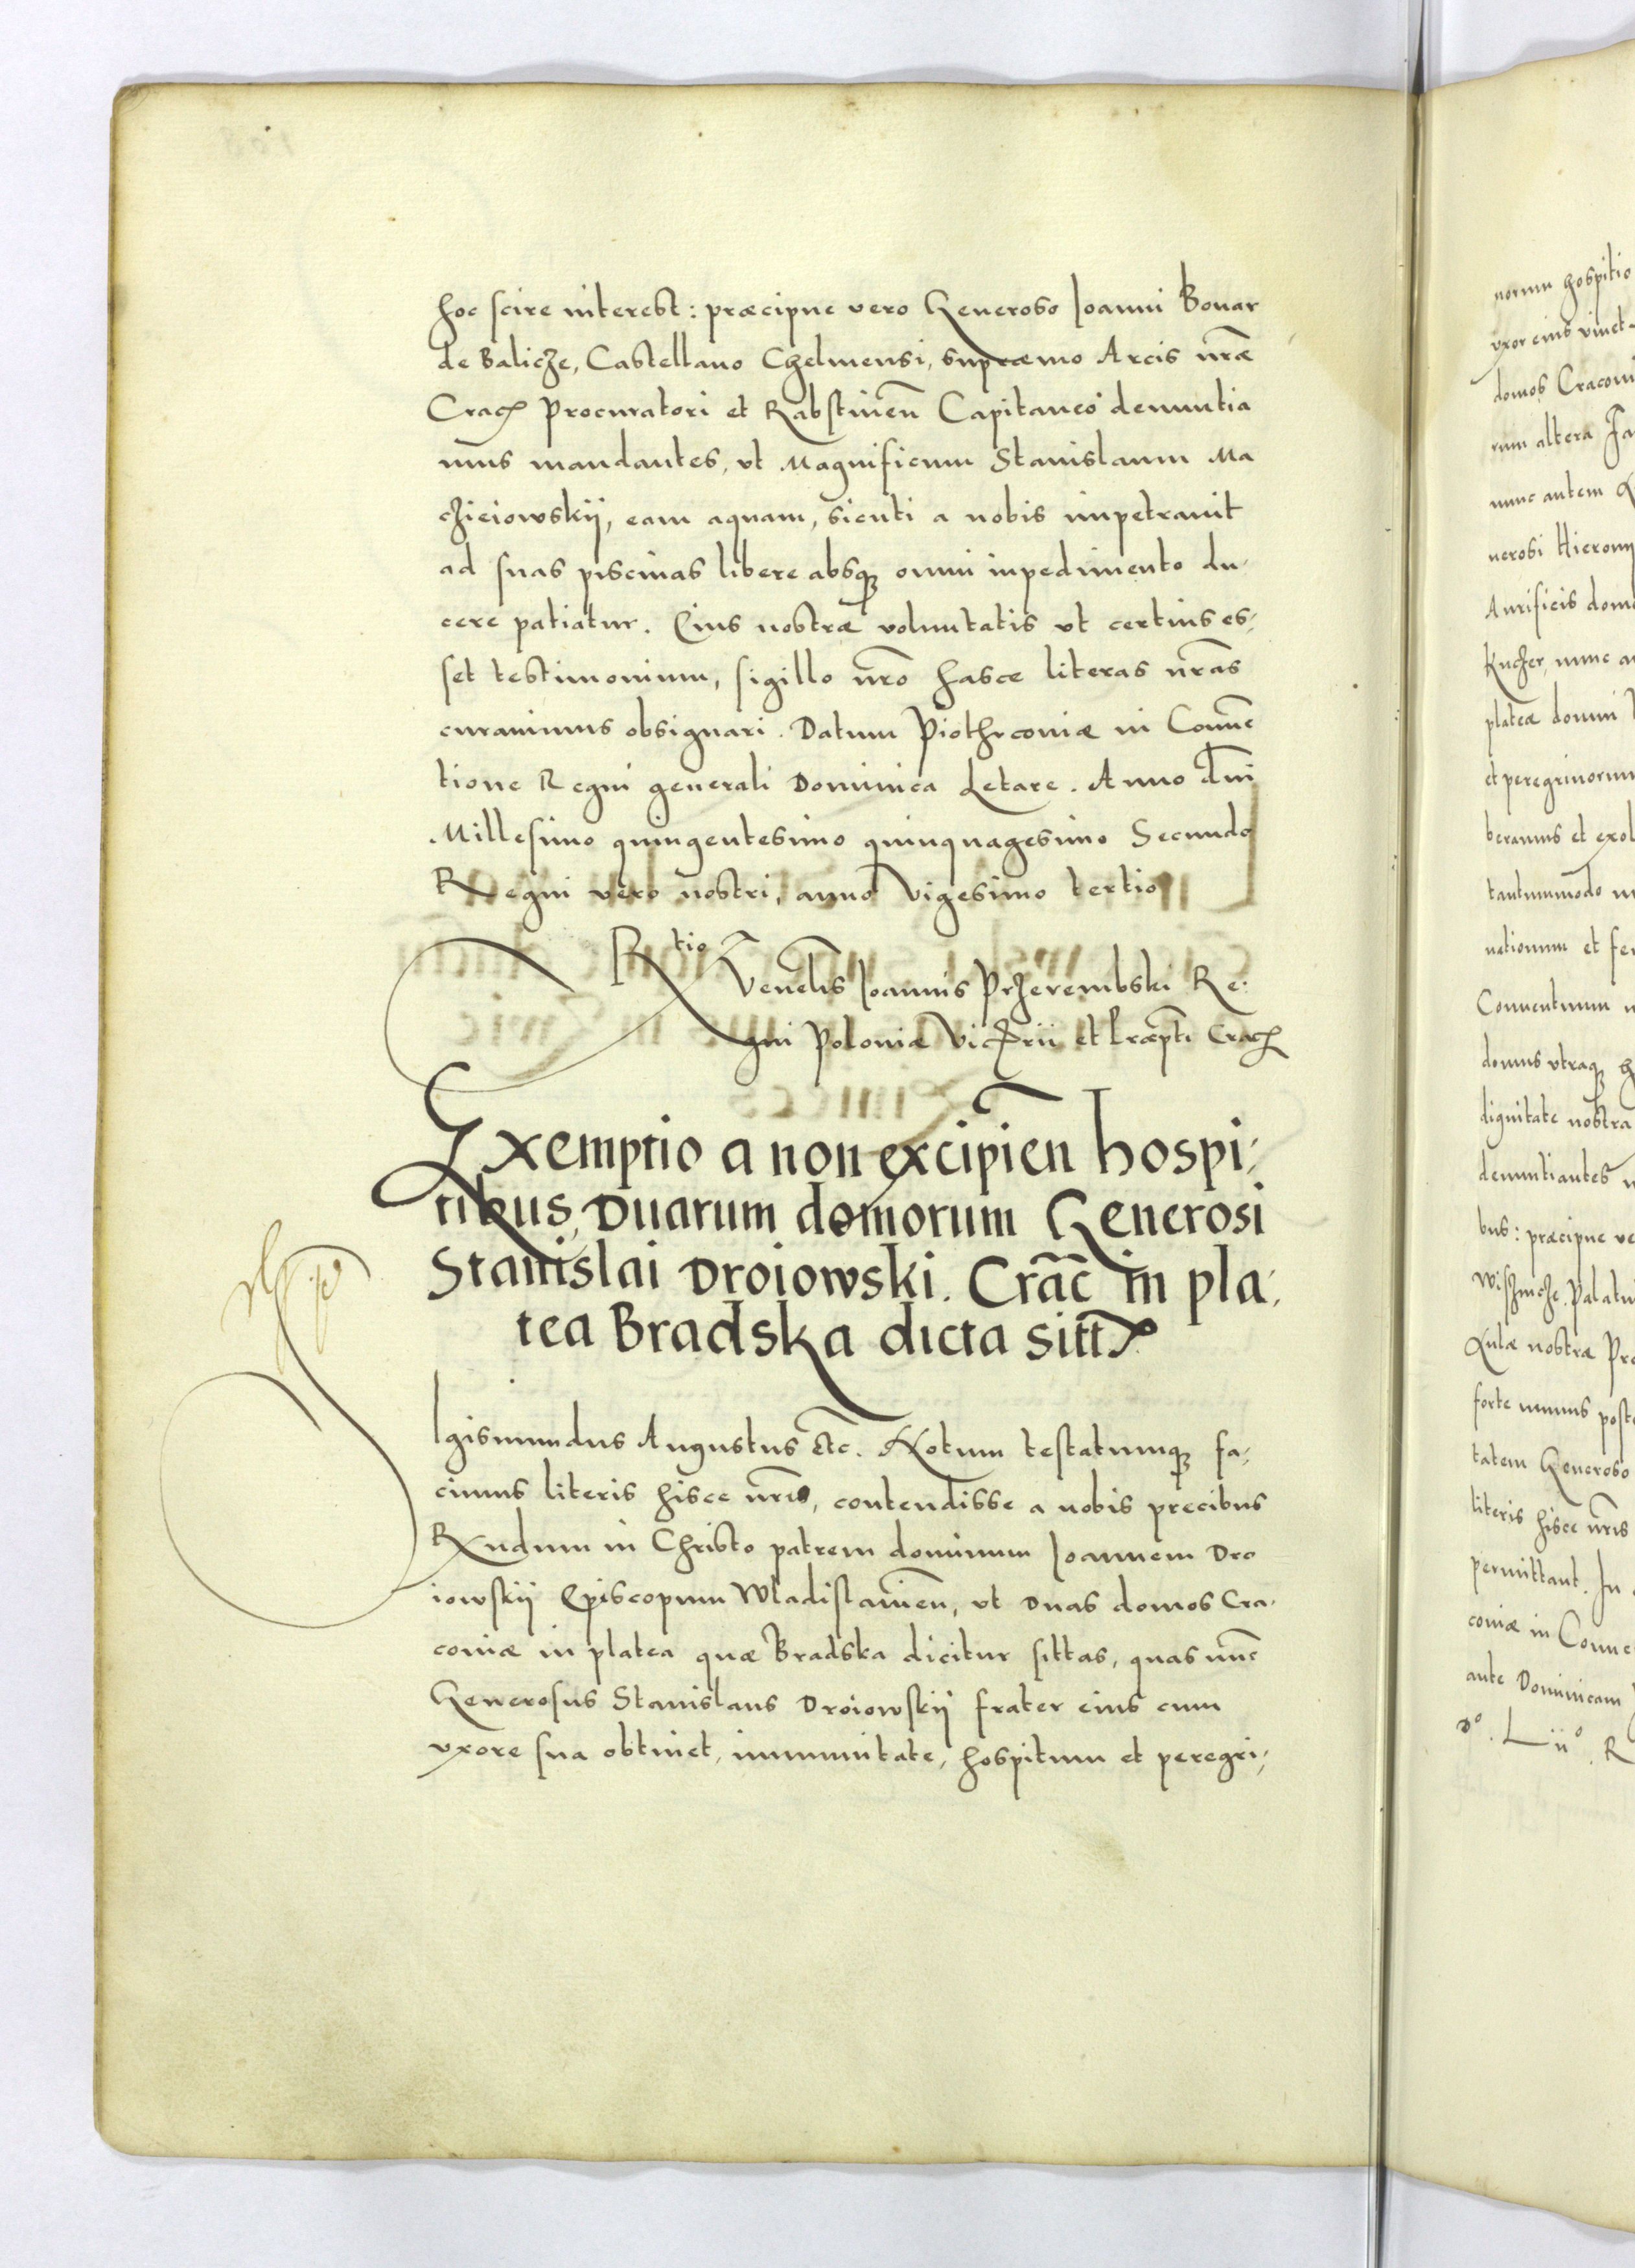 hoc scire interest: præcipue vero Generoso Ioanni Bonar
de Balicze, Castellano Chelmensi, supræmo Arcis nr̃æ
Crac̃ Procuratori et Rabstineñ Capitaneo denuntia
mus mandantes, vt Magnificum Stanislaum Ma
czieiowskij, eam aquam, sicuti a nobis impetrauit
ad suas piscinas libere absqꝫ omni inpedimento du-
cere patiatur. Eius nostræ voluntatis vt certius es-
set testimonium, sigillo nr̃o hasce literas nr̃as
curauimus obsignari. Datum Piothrconiæ in Conuẽ
tione Regni generali Dominica Letare. Anno dñi
Millesimo quingentesimo quinquagesimo Secundo
Regni vero nostri, anno vigesimo tertio
Rtio Veneħlis Ioannis Przerembski Re-
gni Poloniæ Vic̃rii et Præpti Crac̃
Exemptio a non excipieñ hospi-
tibus, Duarum domorum Generosi
Stanislai Droiowski. Crac̃ in pla-
tea Bradska dicta sitt̃
Igismundus Augustus Etc. Notum testatumqꝫ fa-
cimus literis hisce nr̃is, contendisse a nobis precibus
Rxndum in Christo patrem dominum Ioannem Dro
iowskij Episcopum Wladislauieñ, vt Duas domos Cra-
coniæ in platea quæ Bradska dicitur sittas, quas nũc
Generosus Stanislaus Droiowskij frater eius cum
vxore sua obtinet, immunitate, hospitum et peregri-
norum hospitio
vxor eius viuet
domos Cracoui
rum altera Ja
nunc autem G
nerosi Hierony
Aurificis dom
Kuczer, nunc a
plateæ domini
et peregrinorum
beramus et exol
tantummodo
uetionum et fer
Conuentuum
domus vtraqꝫ
dignitate nostra
denuntiantes
bus: præcipue ve
Palatin
Aulæ nostræ Pro
forte nemus post
tatem Generoso
literis hisce nr̃is
permittant. In
coniæ in Conue
ante Dominicam